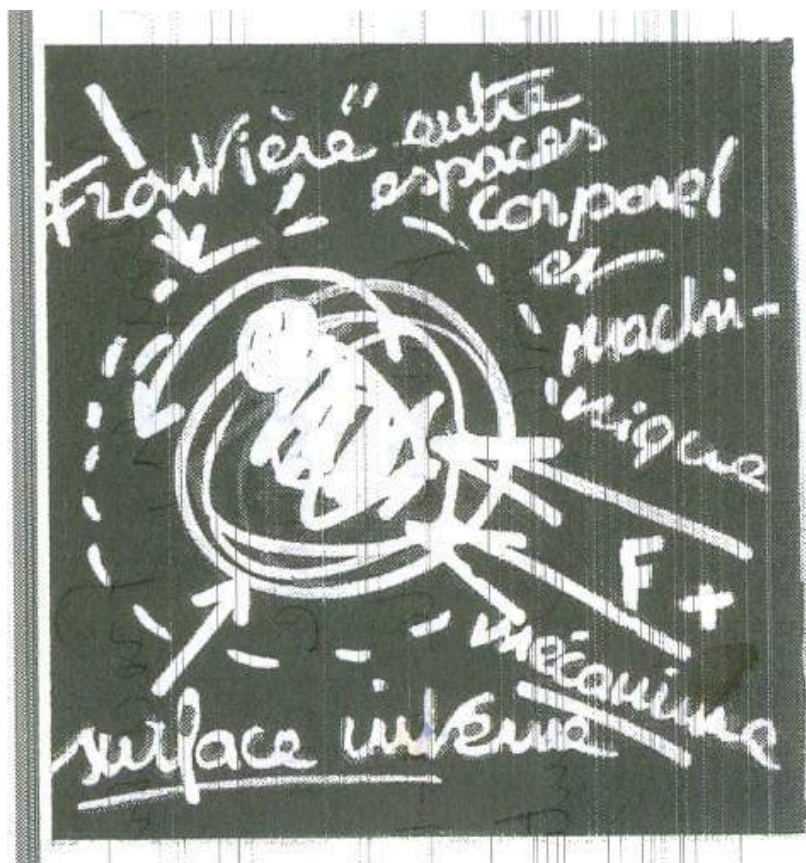 "Frontière" entre
espaces
corporel
et
machi-
nique
F +
mécanisme
surface interne